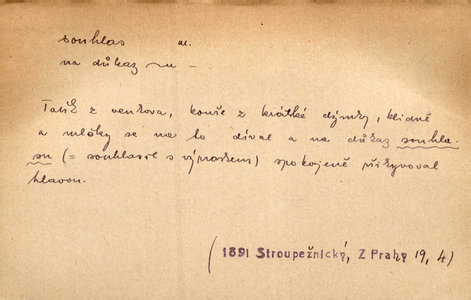 souhlas m.
na důkaz ~u –
Tatík z venkova, kouře z krátké dýmky, klidně
a mlčky se na to díval a na důkaz souhla-
su (= souhlasil s výrokem) spokojeně přikyvoval
hlavou.
(1891 Stroupežnický, Z Prahy 19, 4)